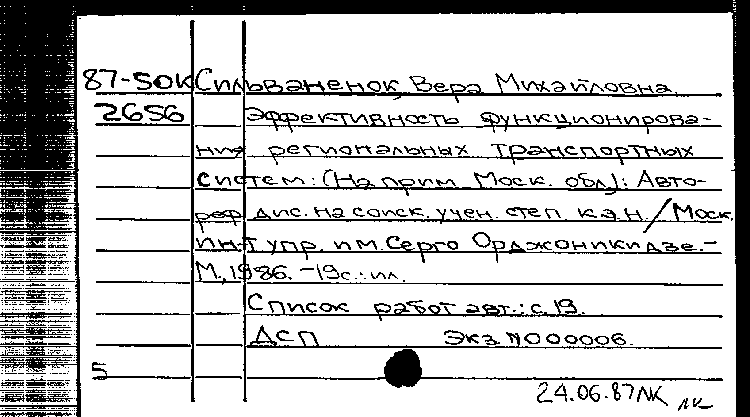 87-50К Сильваненок Вера Михайловна
2656 Эффективность функционирова-
ния региональных транспортных
систем: (На прим. Моск. обл.): Авто-
реф. дис. на соиск. учен. степ. к.э.н. / Моск.
ин-т упр. им. Серго Орджоникидзе. -
М., 1986. - 19 с.: ил.
Список работ авт.: с. 19.
ДСП Экз. N 000006.
5
24.06.87 ЛК
ЛК